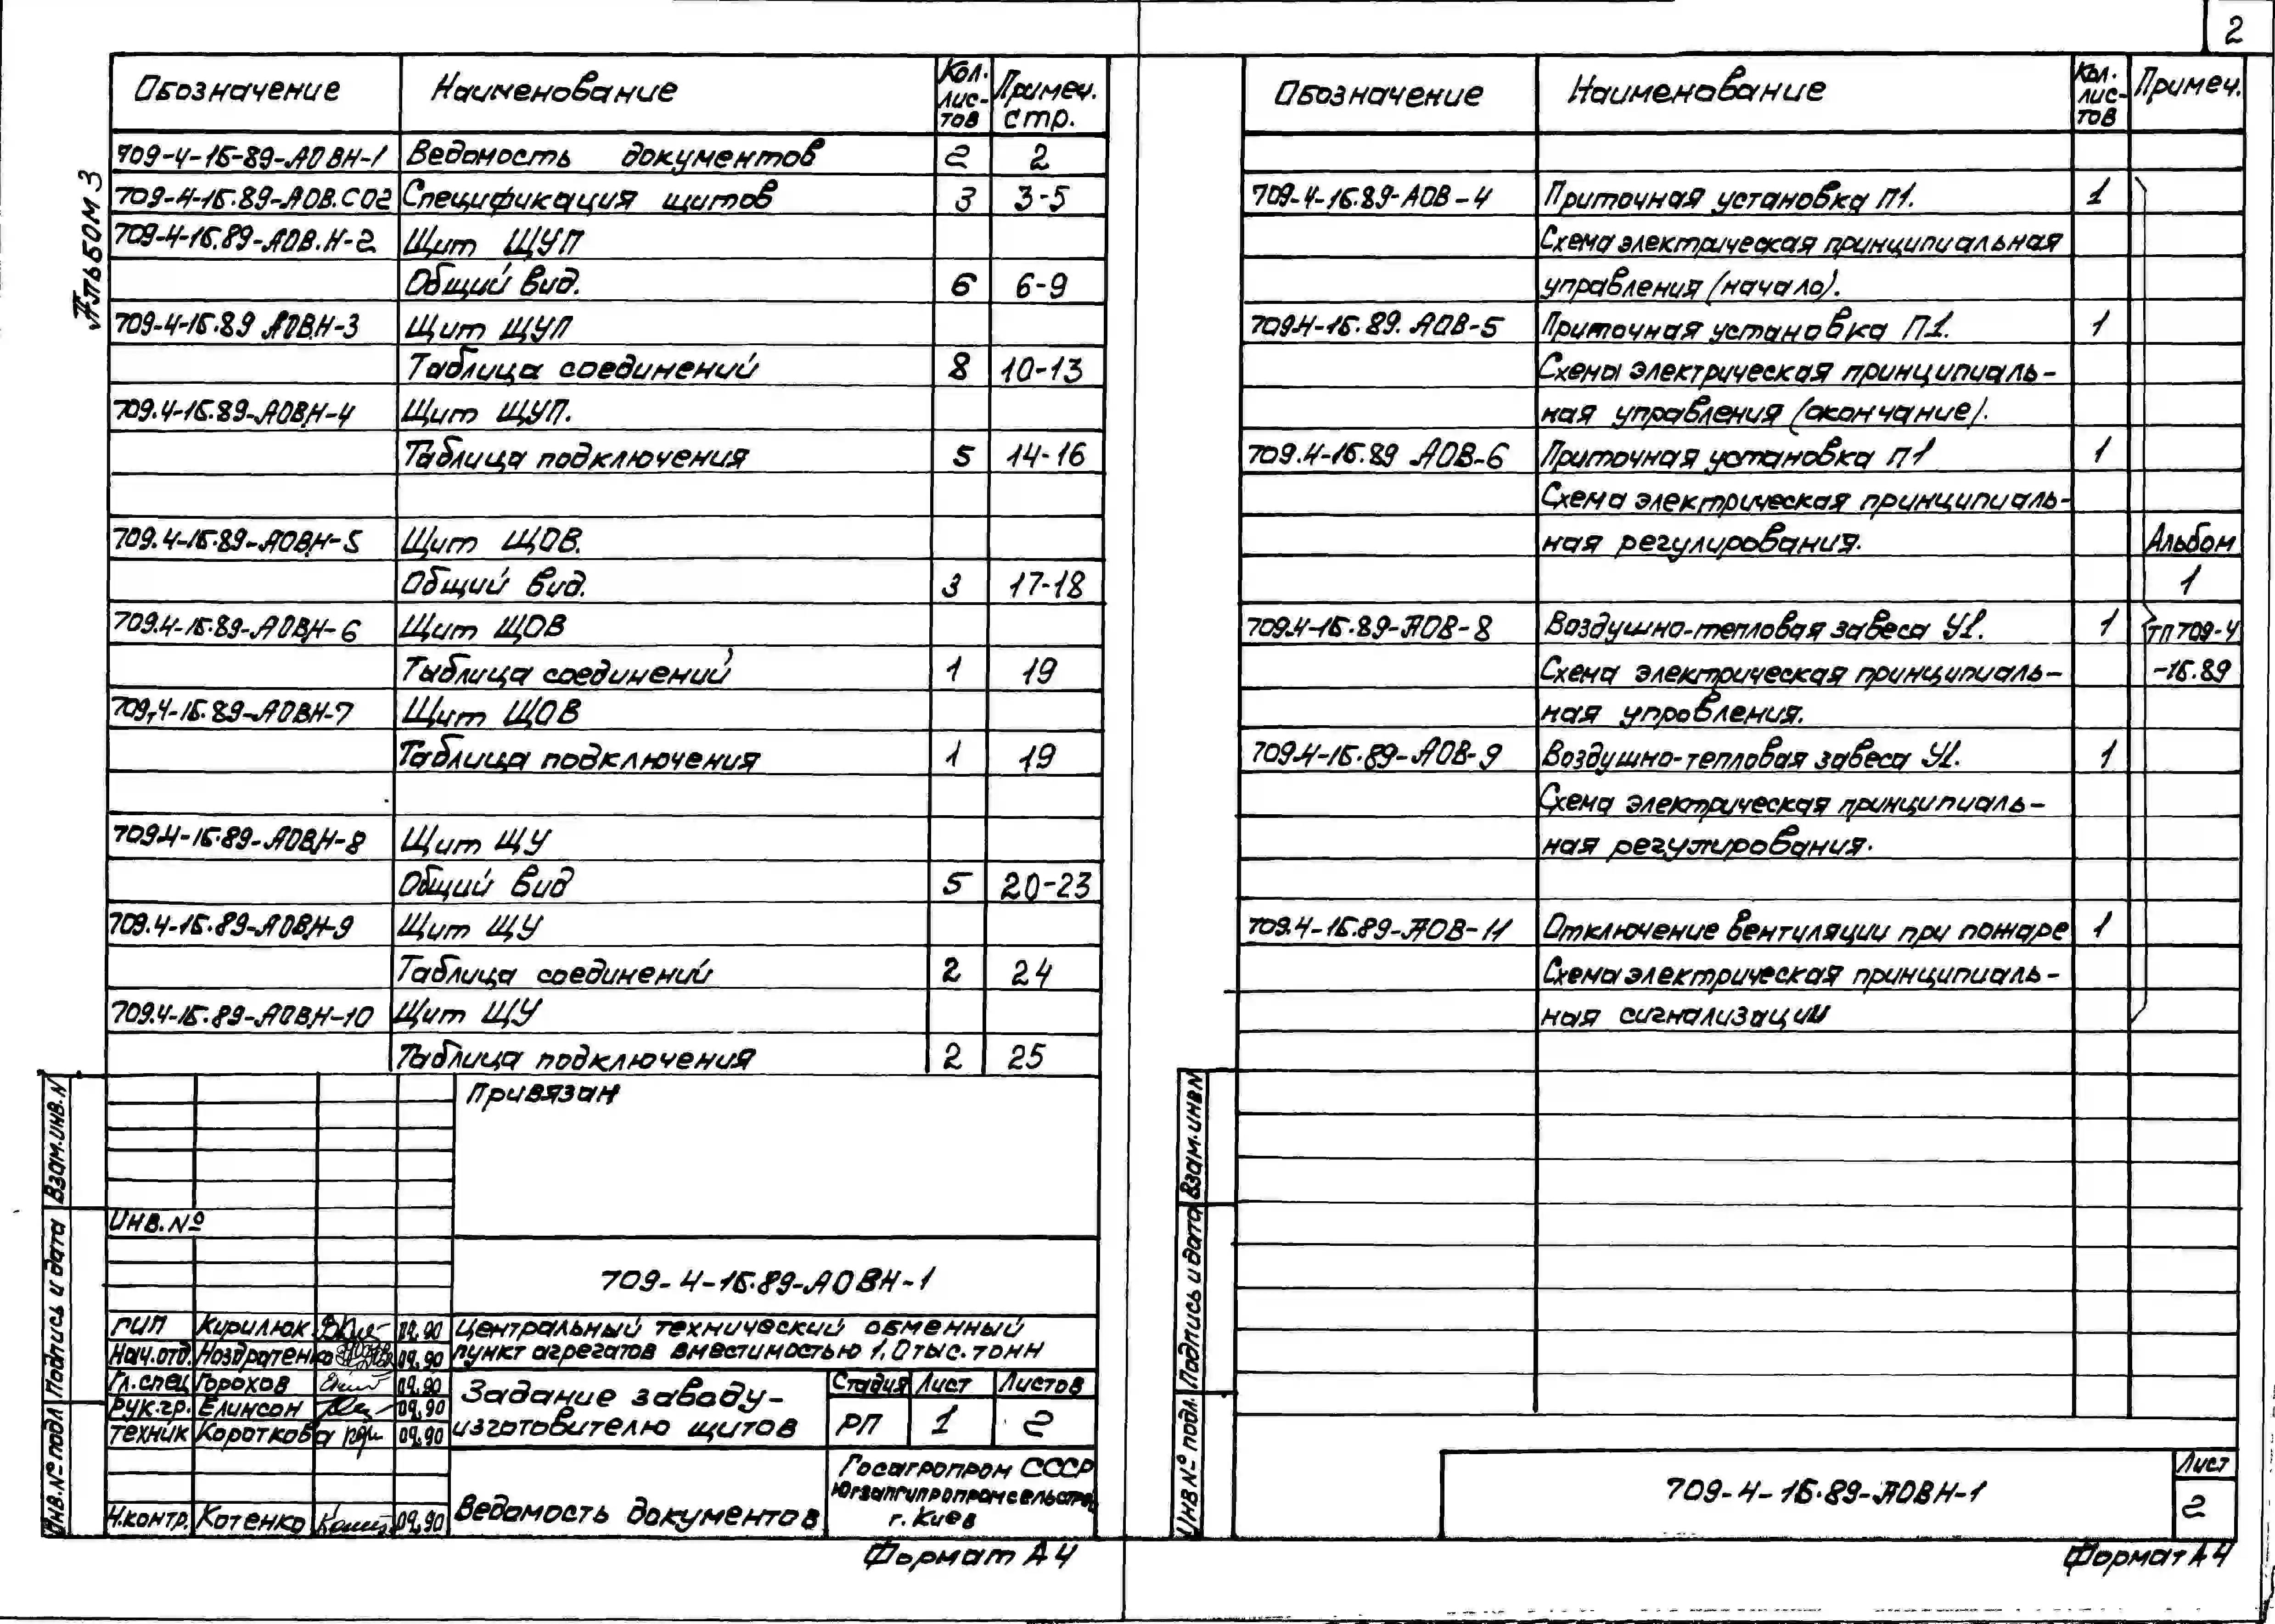 2
Альбом 3
Обозначение Наименование Кол. лис-тов Примеч. стр.
709-4-15-89-АОВН-1 Ведомость документов 2 2
709-4-15.89-АОВ.СО2 Спецификация щитов 3 3-5
709-4-15.89-АОВ.Н-2 Щит ЩУП
Общий вид. 6 6-9
709-4-15.89 АОВ.Н-3 Щит ЩУП
Таблица соединений 8 10-13
709.4-15.89-АОВ.Н-4 Щит ЩУП.
Таблица подключения 5 14-16
709.4-15.89-АОВ.Н-5 Щит ЩОВ.
Общий вид. 3 17-18
709.4-15.89-АОВ.Н-6 Щит ЩОВ
Таблица соединений 1 19
709.4-15.89-АОВН-7 Щит ЩОВ
Таблица подключения 1 19
709.4-15.89-АОВ.Н-8 Щит ЩУ
Общий вид 5 20-23
709.4-15.89-АОВ.Н-9 Щит ЩУ
Таблица соединений 2 24
709.4-15.89-АОВ.Н-10 Щит ЩУ
Таблица подключения 2 25
Привязан
Инв.№
709-4-15.89-АОВН-1
ГИП Кирилюк 09.90
Нач.отд. Ноздратенко 09.90
Гл.спец Горохов 09.90
Рук.гр. Елинсон 09.90
Техник Короткова 09.90
Н.контр. Котенко 09.90
Центральный технический обменный
пункт агрегатов вместимостью 1,0тыс.тонн
Задание заводу-
изготовителю щитов
Стадия Лист Листов
РП 1 2
Ведомость документов
Госагропром СССР
Югзапгипропромсельстрой
г.Киев
Формат А4
Взам.инв.N
Подпись и дата
Инв.№ подл
Обозначение Наименование Кол. лис-тов Примеч.
709-4-15.89-АОВ-4 Приточная установка П1. 1
Схема электрическая принципиальная
управления (начало).
709.4-15.89. АОВ-5 Приточная установка П1. 1
Схемы электрическая принципиаль-
ная управления (окончание).
709.4-15.89 АОВ-6 Приточная установка П1 1
Схема электрическая принципиаль-
ная регулирования. Альбом
1
709.4-15.89-АОВ-8 Воздушно-тепловая завеса У1. 1 ТП 709-4
Схема электрическая принципиаль- -15.89
ная управления.
709.4-15.89-АОВ-9 Воздушно-тепловая завеса У1. 1
Схема электрическая принципиаль-
ная регулирования.
709.4-15.89-АОВ-11 Отключение вентиляции при пожаре 1
Схема электрическая принципиаль-
ная сигнализации
Взам.инв.N
Подпись и дата
Инв № подл.
709-4-15.89-АОВН-1
Лист
2
Формат А4